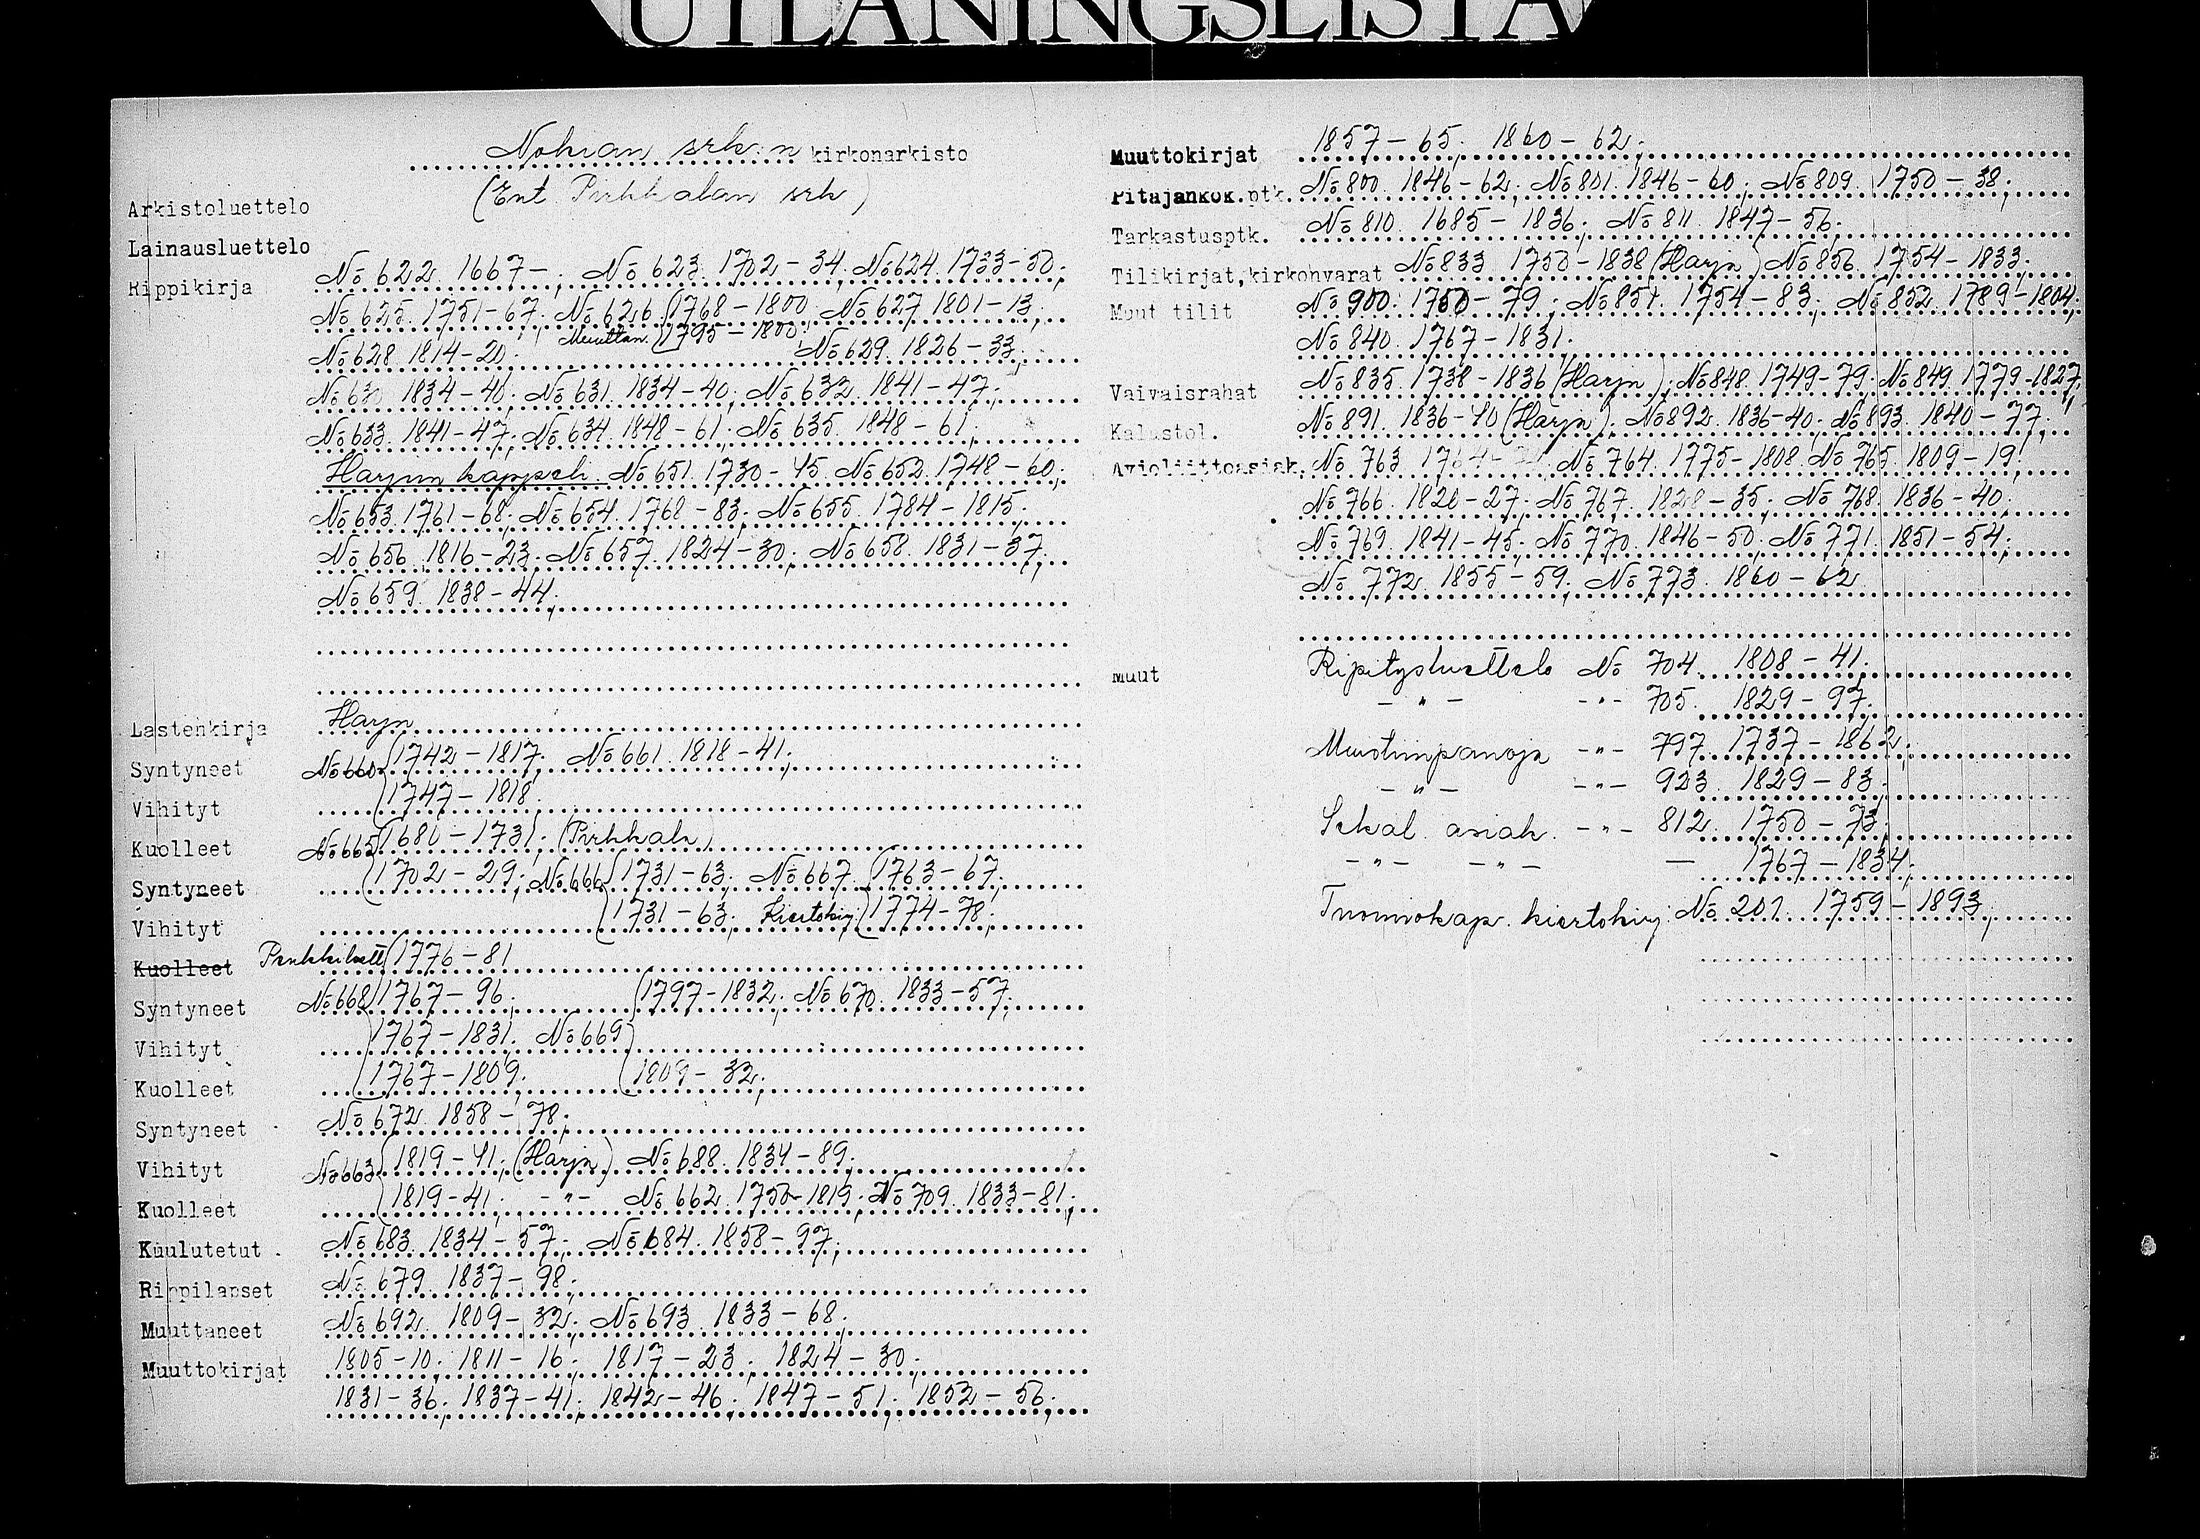 UTLÅNINGSLISTA
Nokian srk:n kirkonarkisto
(Ent. Pirkkalan srk)
Arkistoluettelo
Lainausluettelo
Rippikirja № 622 1667-; № 623 1702-34; № 624 1733-50;
№ 625 1751-67; № 626 {1768-1800 № 627 1801-13;
Muuttan. {1795-1800;
№ 628 1814-20; № 629 1826-33;
№ 630 1834-40; № 631 1834-40; № 632 1841-47;
№ 633 1841-47; № 634 1848-61; № 635 1848-61;
Harjun kappeli № 651 1730-45 № 652 1748-60;
№ 653 1761-68; № 654 1768-83; № 655 1784-1815;
№ 656 1816-23; № 657 1824-30; № 658 1831-37;
№ 659 1838-44;
Lastenkirja Harju
Syntyneet № 660 {1742-1817; № 661 1818-41;
Vihityt {1747-1818
Kuolleet № 665 {1680-1731; (Pirkkala)
Syntyneet {1702-29; № 666 {1731-63; № 667 {1763-67;
Vihityt {1731-63; Kiertokirj. {1774-78;
Kuolleet Penkkiluett. {1776-81
Syntyneet № 668 {1767-96; {1797-1832; № 670 1833-57;
Vihityt {1767-1831; № 669
Kuolleet {1767-1809; {1809-32;
Syntyneet № 672 1858-78;
Vihityt № 663 {1819-41; (Harju) № 688 1834-89;
Kuolleet {1819-41; -"- № 662 1750-1819; № 709 1833-81;
Kuulutetut № 683 1834-57; № 684 1858-97;
Rippilapset № 679 1837-98;
Muuttaneet № 692 1809-32; № 693 1833-68;
Muuttokirjat 1805-10; 1811-16; 1817-23; 1824-30;
1831-36; 1837-41; 1842-46; 1847-51; 1852-56;
Muuttokirjat 1857-65; 1860-62;
Pitäjänkok.ptk. № 800 1846-62; № 801 1846-60; № 809 1750-38;
Tarkastusptk. № 810 1685-1836; № 811 1847-56;
Tilikirjat,kirkonvarat № 833 1750-1838 (Harju) № 856 1754-1833;
Muut tilit № 900 1760-79; № 851 1754-83; № 852 1789-1804;
№ 840 1767-1831;
Vaivaisrahat № 835 1738-1836 (Harju); № 848 1749-79; № 849 1779-1827;
Kalustol. № 891 1836-40 (Harju); № 892 1836-40; № 893 1840-77;
Avioliittoasiak. № 763 № 764 1775-1808 № 765 1809-19;
№ 766 1820-27; № 767 1828-35; № 768 1836-40;
№ 769 1841-45; № 770 1846-50; № 771 1851-54;
№ 772 1855-59; № 773 1860-62
Muut Ripitysluettelo № 704 1808-41;
-"- -"- 705 1829-97;
Muistiinpanoja -"- 797 1737-1862;
-"- -"- 923 1829-83;
Sekal. asiak. -"- 812 1750-73;
-"- -"- - 1767-1834;
Tuomiokap. kiertokirj. № 201 1759-1893;